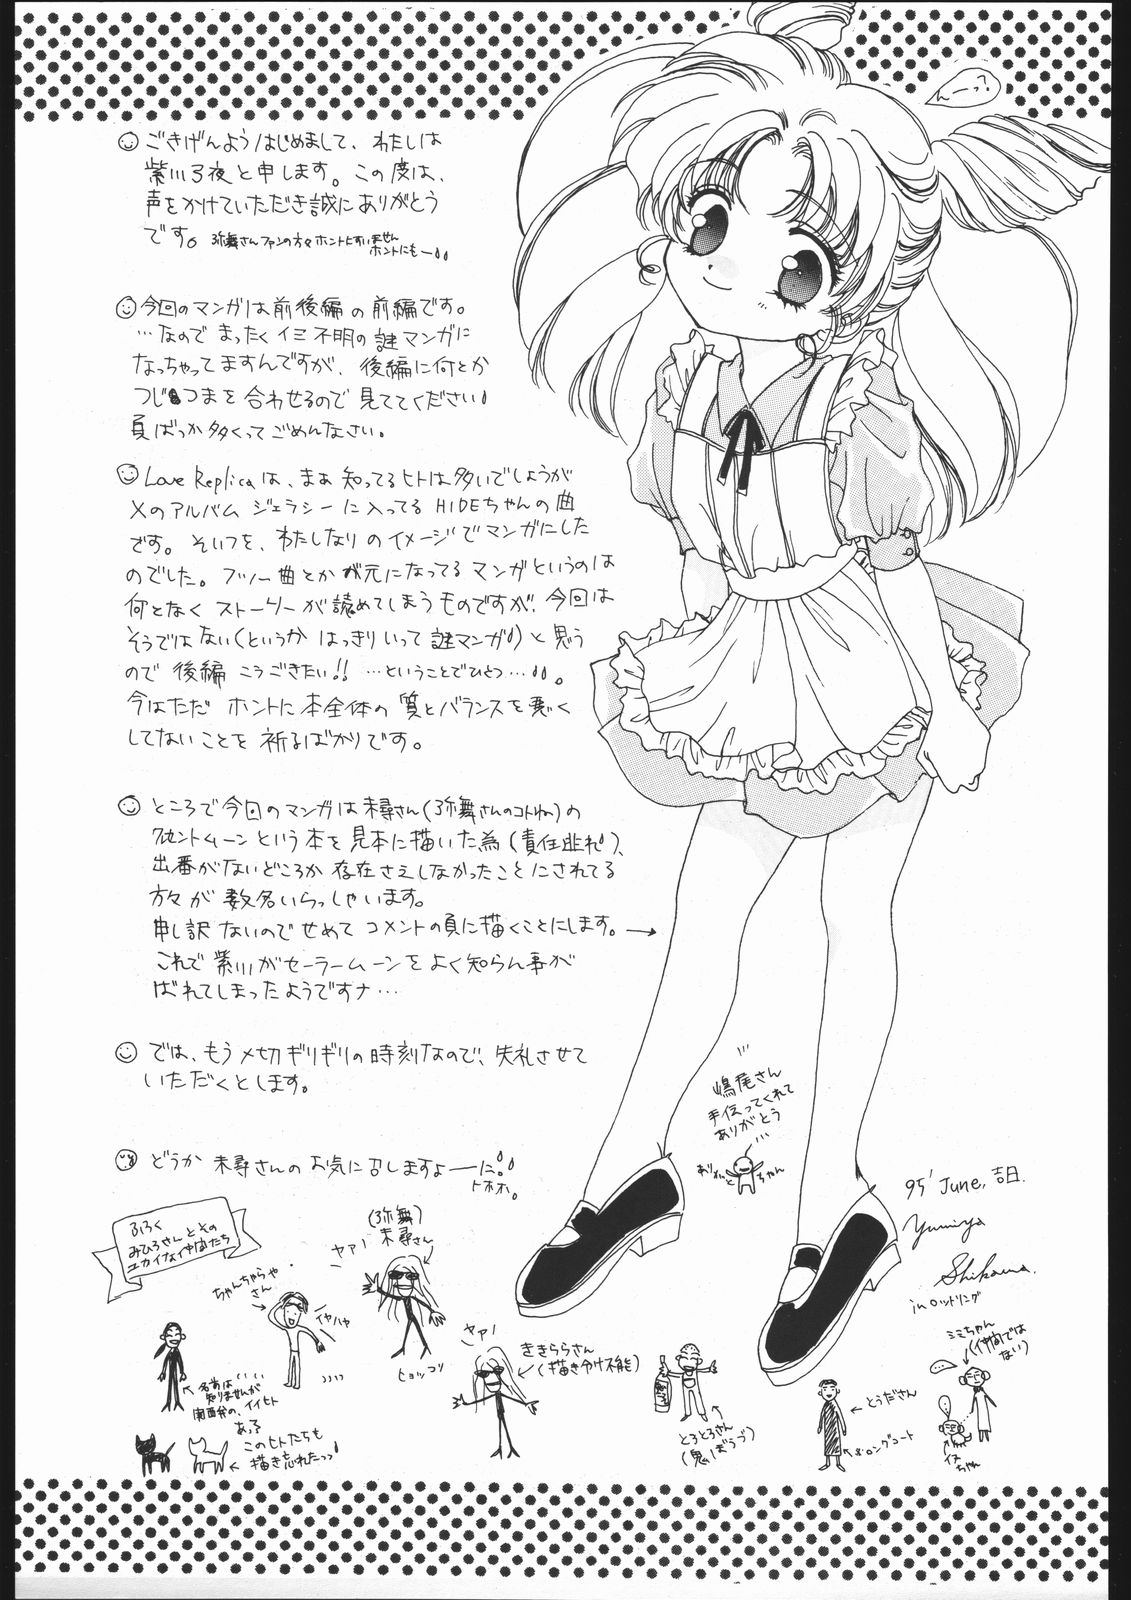 んーっ?
ごきげんよう はじめまして、 わたしは
紫川弓夜と申します。この度は、
声をかけていただき誠にありがとう
です。 弥舞さんファンの方々ホントにすいません
ホントにもー
今回のマンガは前後編の前編です。
…なので まったくイミ不明の謎マンガに
なっちゃってますんですが、後編に何とか
つじつまを合わせるので見ててください
負ばっか多くってごめんなさい。
Love Replicaは、まぁ知ってるヒトは多いでしょうが
Xのアルバム ジェラシーに入ってる HIDEちゃんの曲
です。そいつを、わたしなりのイメージでマンガにした
のでした。フツー曲とかが元になってるマンガというのは
何となくストーリーが読めてしまうものですが、今回は
そうではない(というか はっきりいって謎マンガ)と思う
ので 後編 こうごきたい!! …ということでひとつ…。
今はただ ホントに本全体の質とバランスを悪く
してないことを祈るばかりです。
ところで今回のマンガは未尋さん(弥舞さんのコトね)の
クレセントムーンという本を見本に描いた為(責任逃れ)、
出番がないどころか存在さえしなかったことにされてる
方々が数名いらっしゃいます。
申し訳ないのでせめてコメントの頁に描くことにします。→
これで紫川がセーラームーンをよく知らん事が
ばれてしまったようですナ…
では、もう〆切ギリギリの時刻なので、失礼させて
いただくとします。
どうか 未尋さんのお気に召しますよーに。
トホホ。
嶋尾さん
手伝ってくれて
ありがとう
ありがっと
ちゃん
95' June, 吉日.
Yumiya
Shikawa.
in ロットリング
ふろく
みひろさんとその
ユカイな仲間たち
ちゃんちゃらや
さん
イヤハヤ
ヤァ!
(弥舞)
未尋さん
ヒョッコリ
ヤァ!
ききららさん
(描き分け不能)
名前は
知りませんが
関西弁の、イイヒト
あっ
このヒトたちも
描き忘れたっっ
とろとろさん
(鬼ぼうづ)
とうださん
ロングコート
ミミちゃん
(仲間では
ない)
イヌ
ちゃん